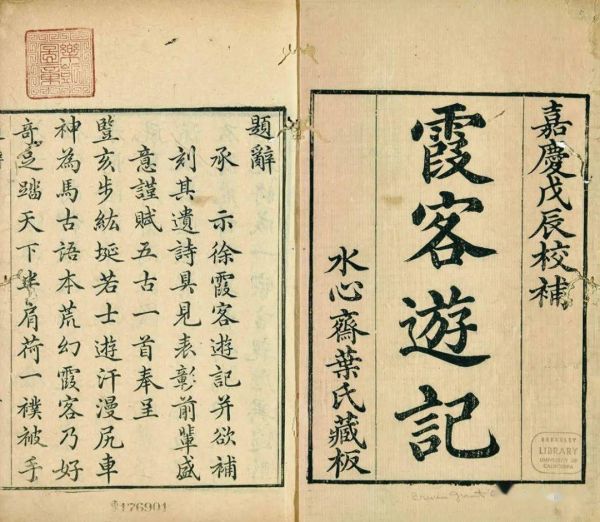 嘉慶戊辰校補
霞客遊記
水心齋葉氏藏板
BERKELEY
LIBRARY
UNIVERSITY OF
CALIFORNIA
題辭
承　示徐霞客遊記并欲補
刻其遺詩具見表彰前輩盛
意謹賦五古一首奉呈
豎亥步紘埏若士遊汗漫尻車
神為馬古語本荒幻霞客乃好
奇足踏天下半肩荷一襆被手
176901